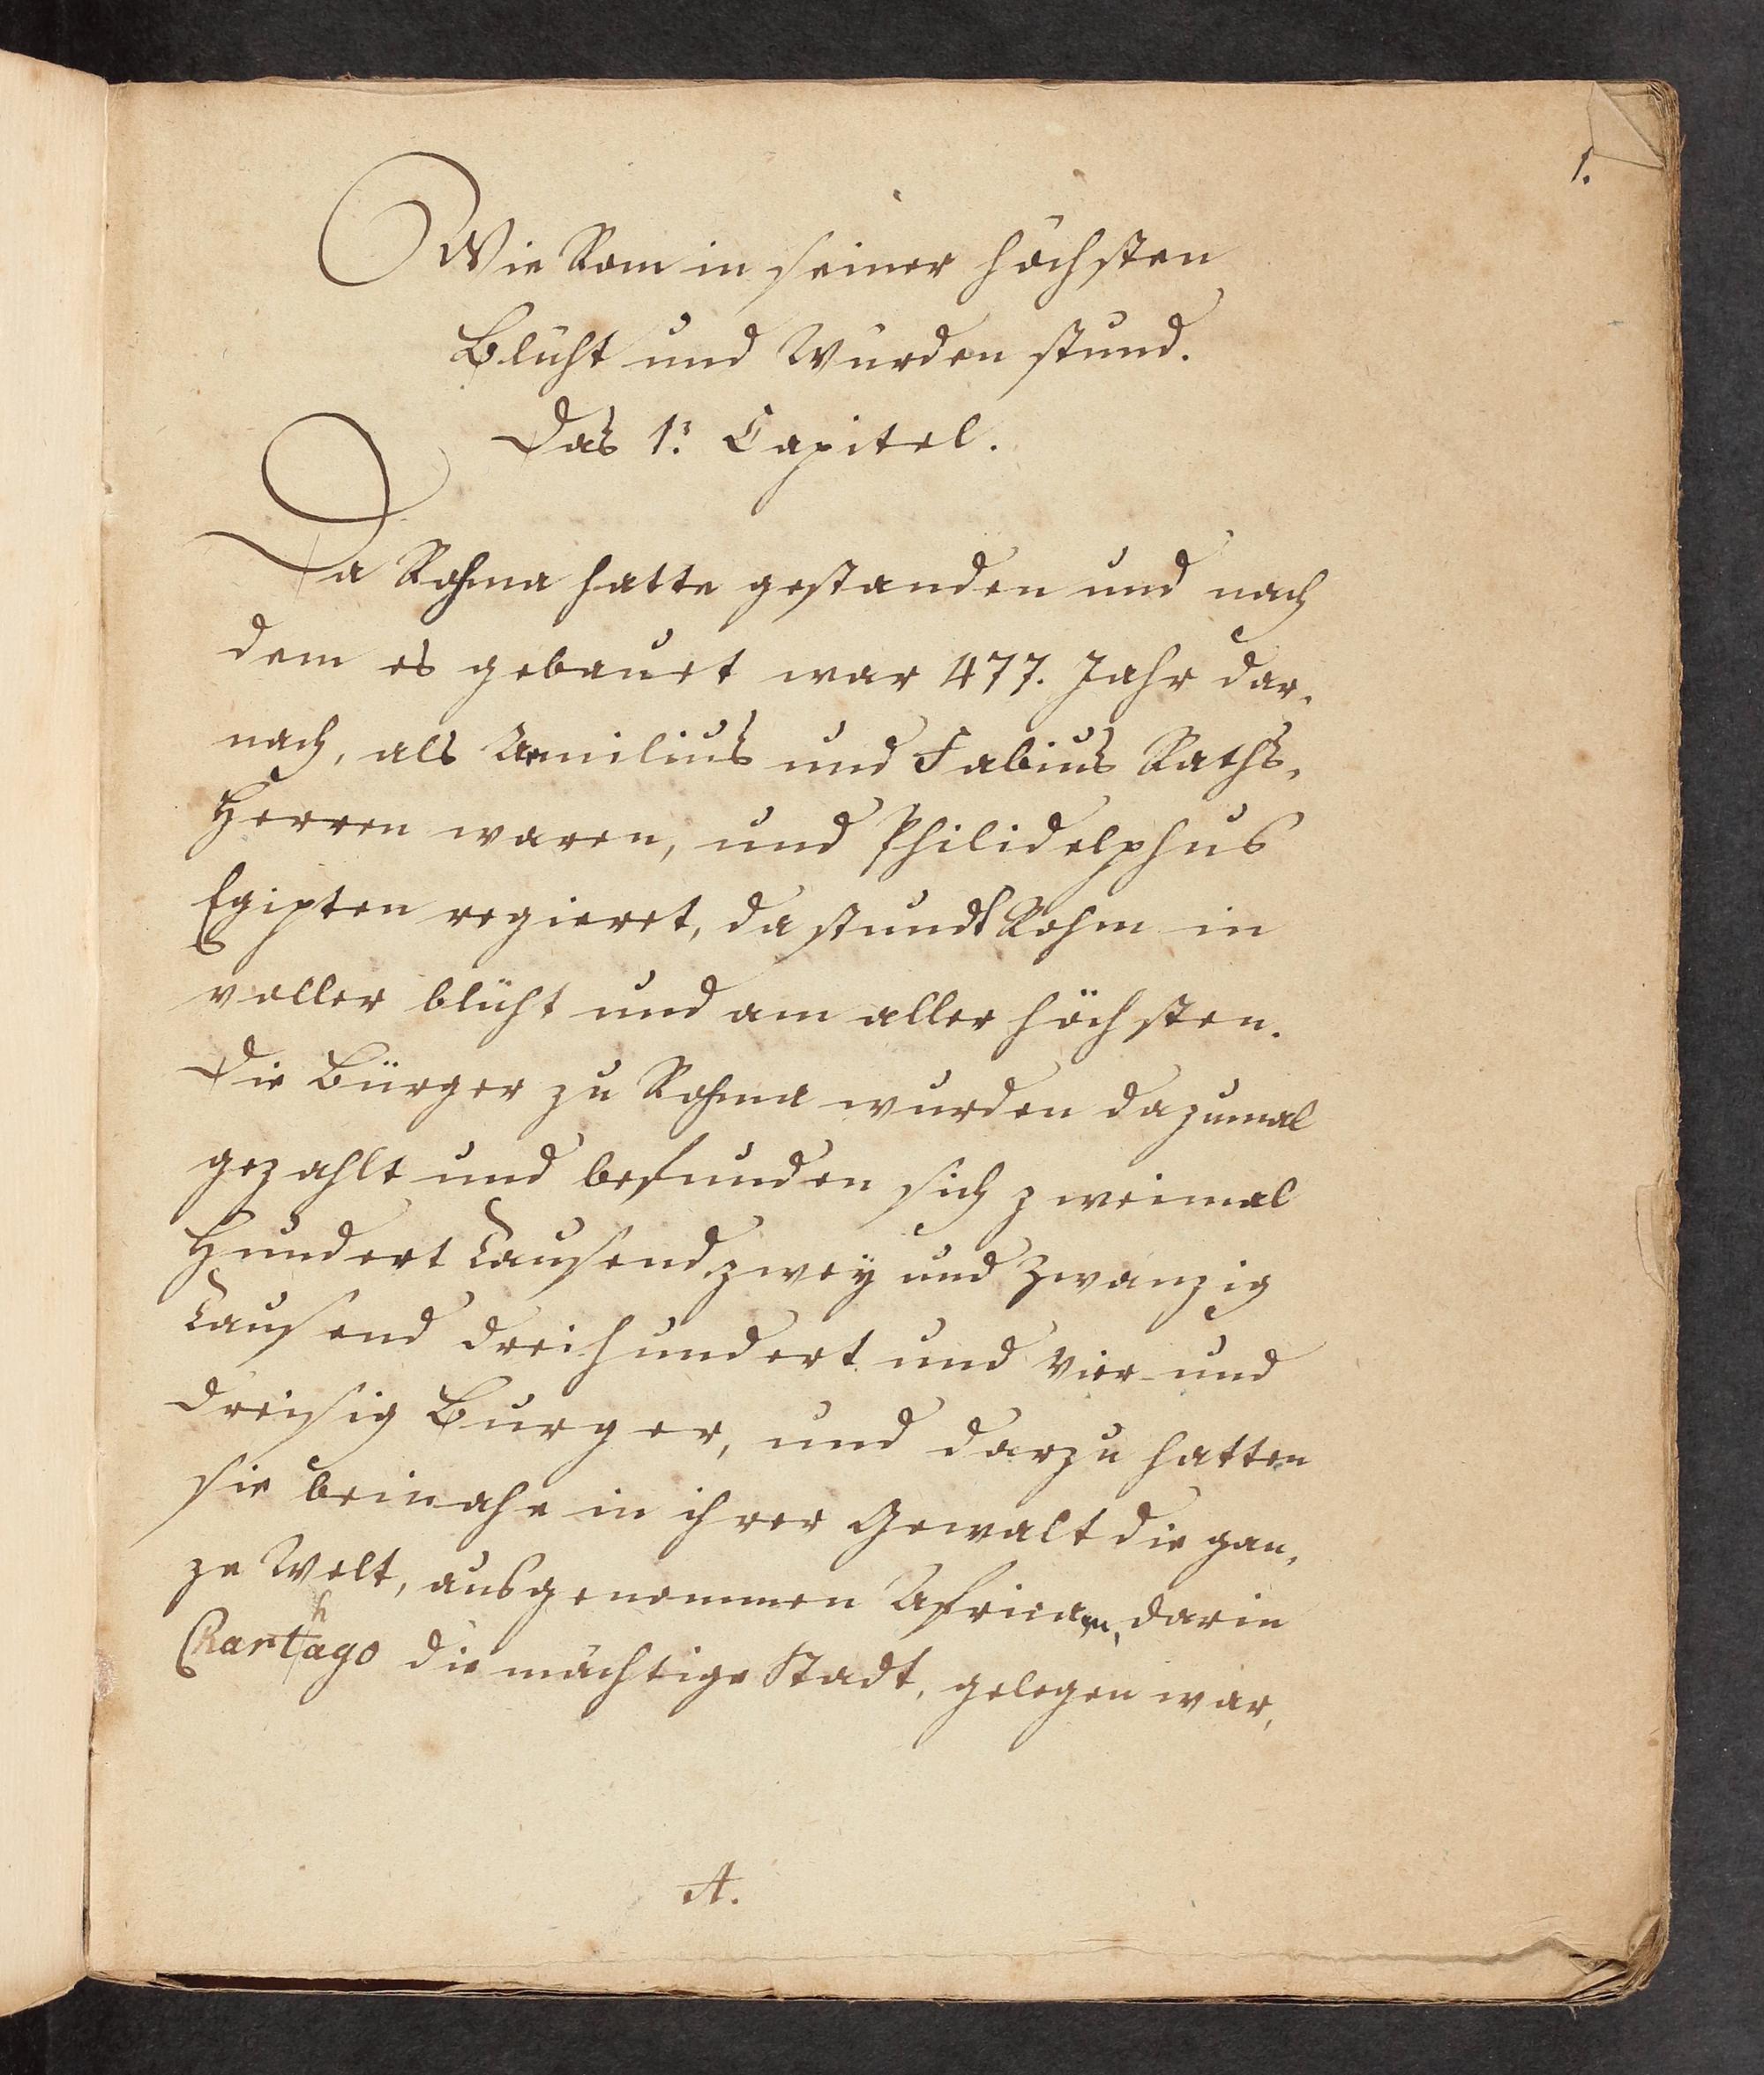 1.
Wie Rom in seiner höchsten
Blüht und Würden stund.
Das 1. Capitel.
Da Rohma hatte gestanden und nach
dem es gebauet war 477. Jahr dar,
nach, als Aemilius und Fabius Raths,
Herren waren, und Philidelphus
Egipten regieret, da stundt Rohm in
voller blüht und am aller höchsten.
Die Bürger zu Rohma wurden dazumal
gezahlt und befunden sich zweimal
Hundert Tausend zwey und Zwanzig
Tausend dreihundert und Vier und
dreisig Burger, und darzu hatten
sie beinahe in ihrer Gewalt die gan,
ze Welt, ausgenommen Africam, darin
Karthago die mächtige Stadt, gelegen war,
A.